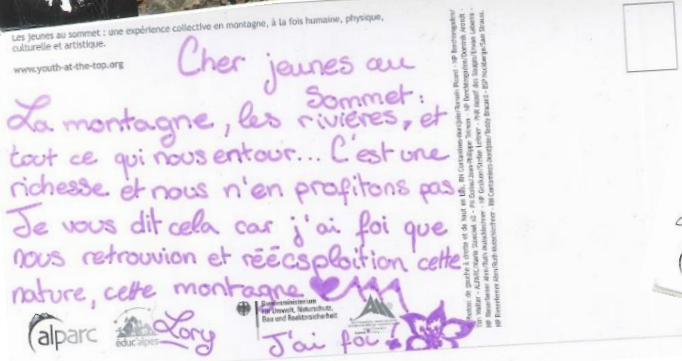 Les jeunes au sommet : une expérience collective en montagne, à la fois humaine, physique,
culturelle et artistique.
www.youth-at-the-top.org
Cher jeunes au
Sommet :
La montagne, les rivières, et
tout ce qui nous entour... C'est une
richesse et nous n'en profitons pas
Je vous dit cela car j'ai foi que
nous retrouvion et réécsploition cette
nature, cette montagne
alparc
éduc'alpes
Lory
Bundesministerium
für Umwelt, Naturschutz,
Bau und Reaktorsicherheit
J'ai foi !